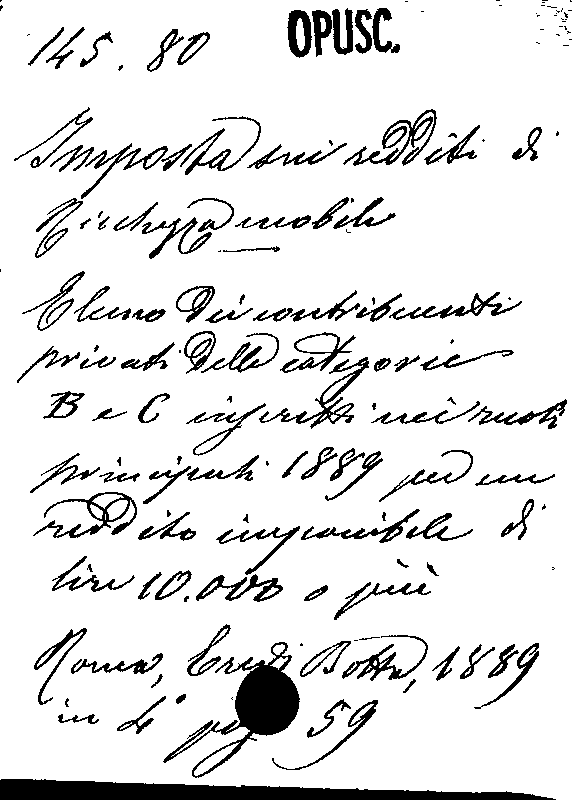 145.80 OPUSC.
Imposta sui redditi di
Ricchezza mobile
Elenco dei contribuenti
privati delle categorie
B e C inscritti nei ruoli
principali 1889 per un
reddito imponibile di
lire 10.000 o più
Roma, Eredi Botta, 1889
in 4° pag 59